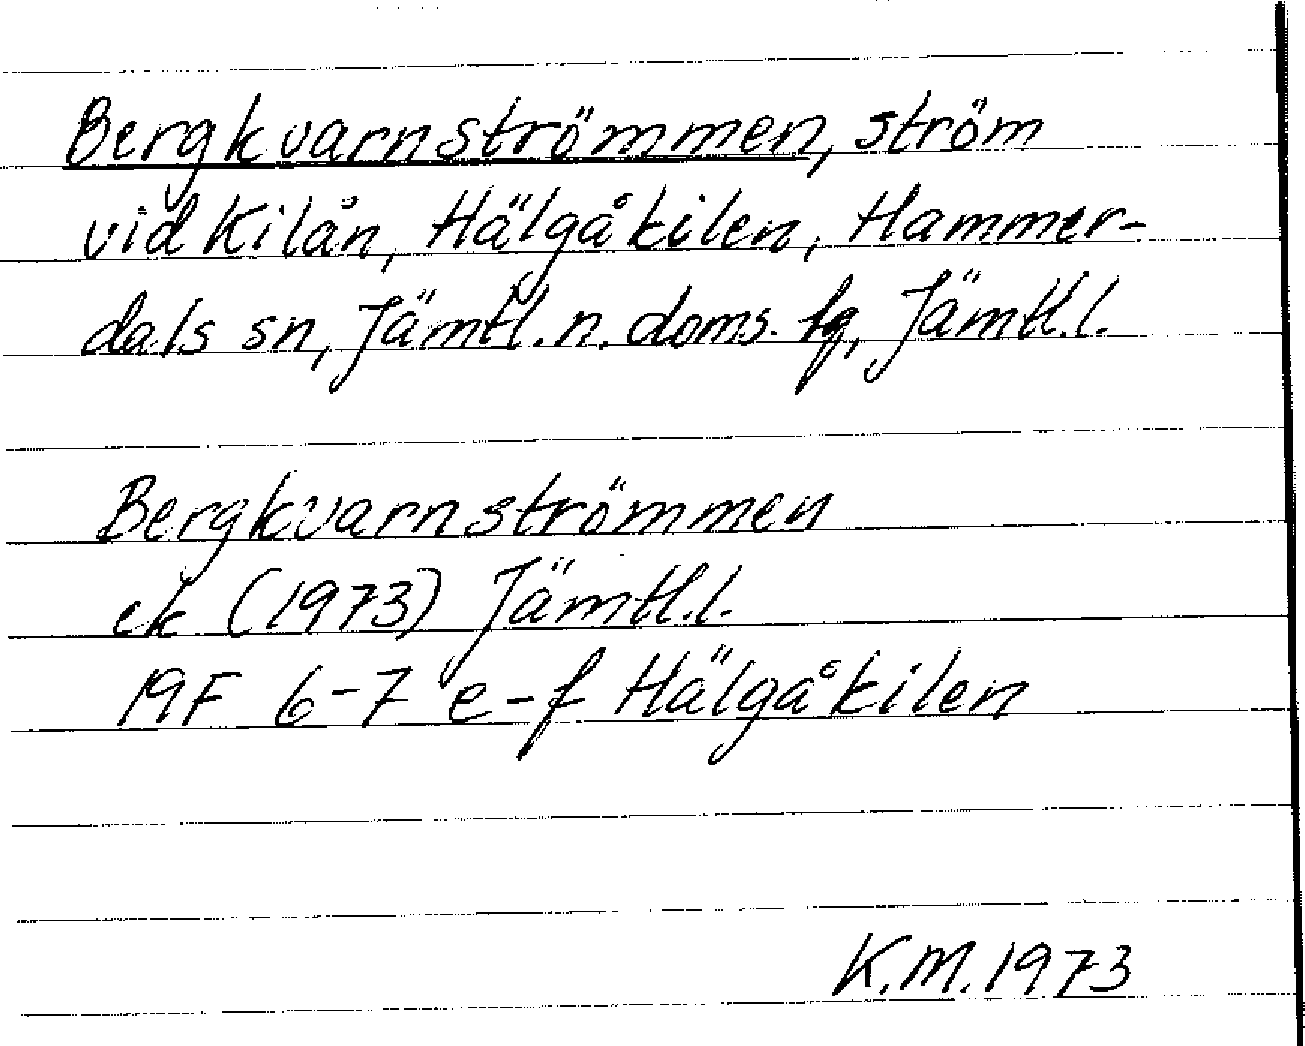 Bergkvarnströmmen, ström
vid Kilån, Hälgåkilen, Hammer-
dals sn, Jämtl. n. doms. fg, Jämtl.l.
Bergkvarnströmmen
ek (1973) Jämtl.l.
19F 6-7 e-f Hälgåkilen
K.M. 1973